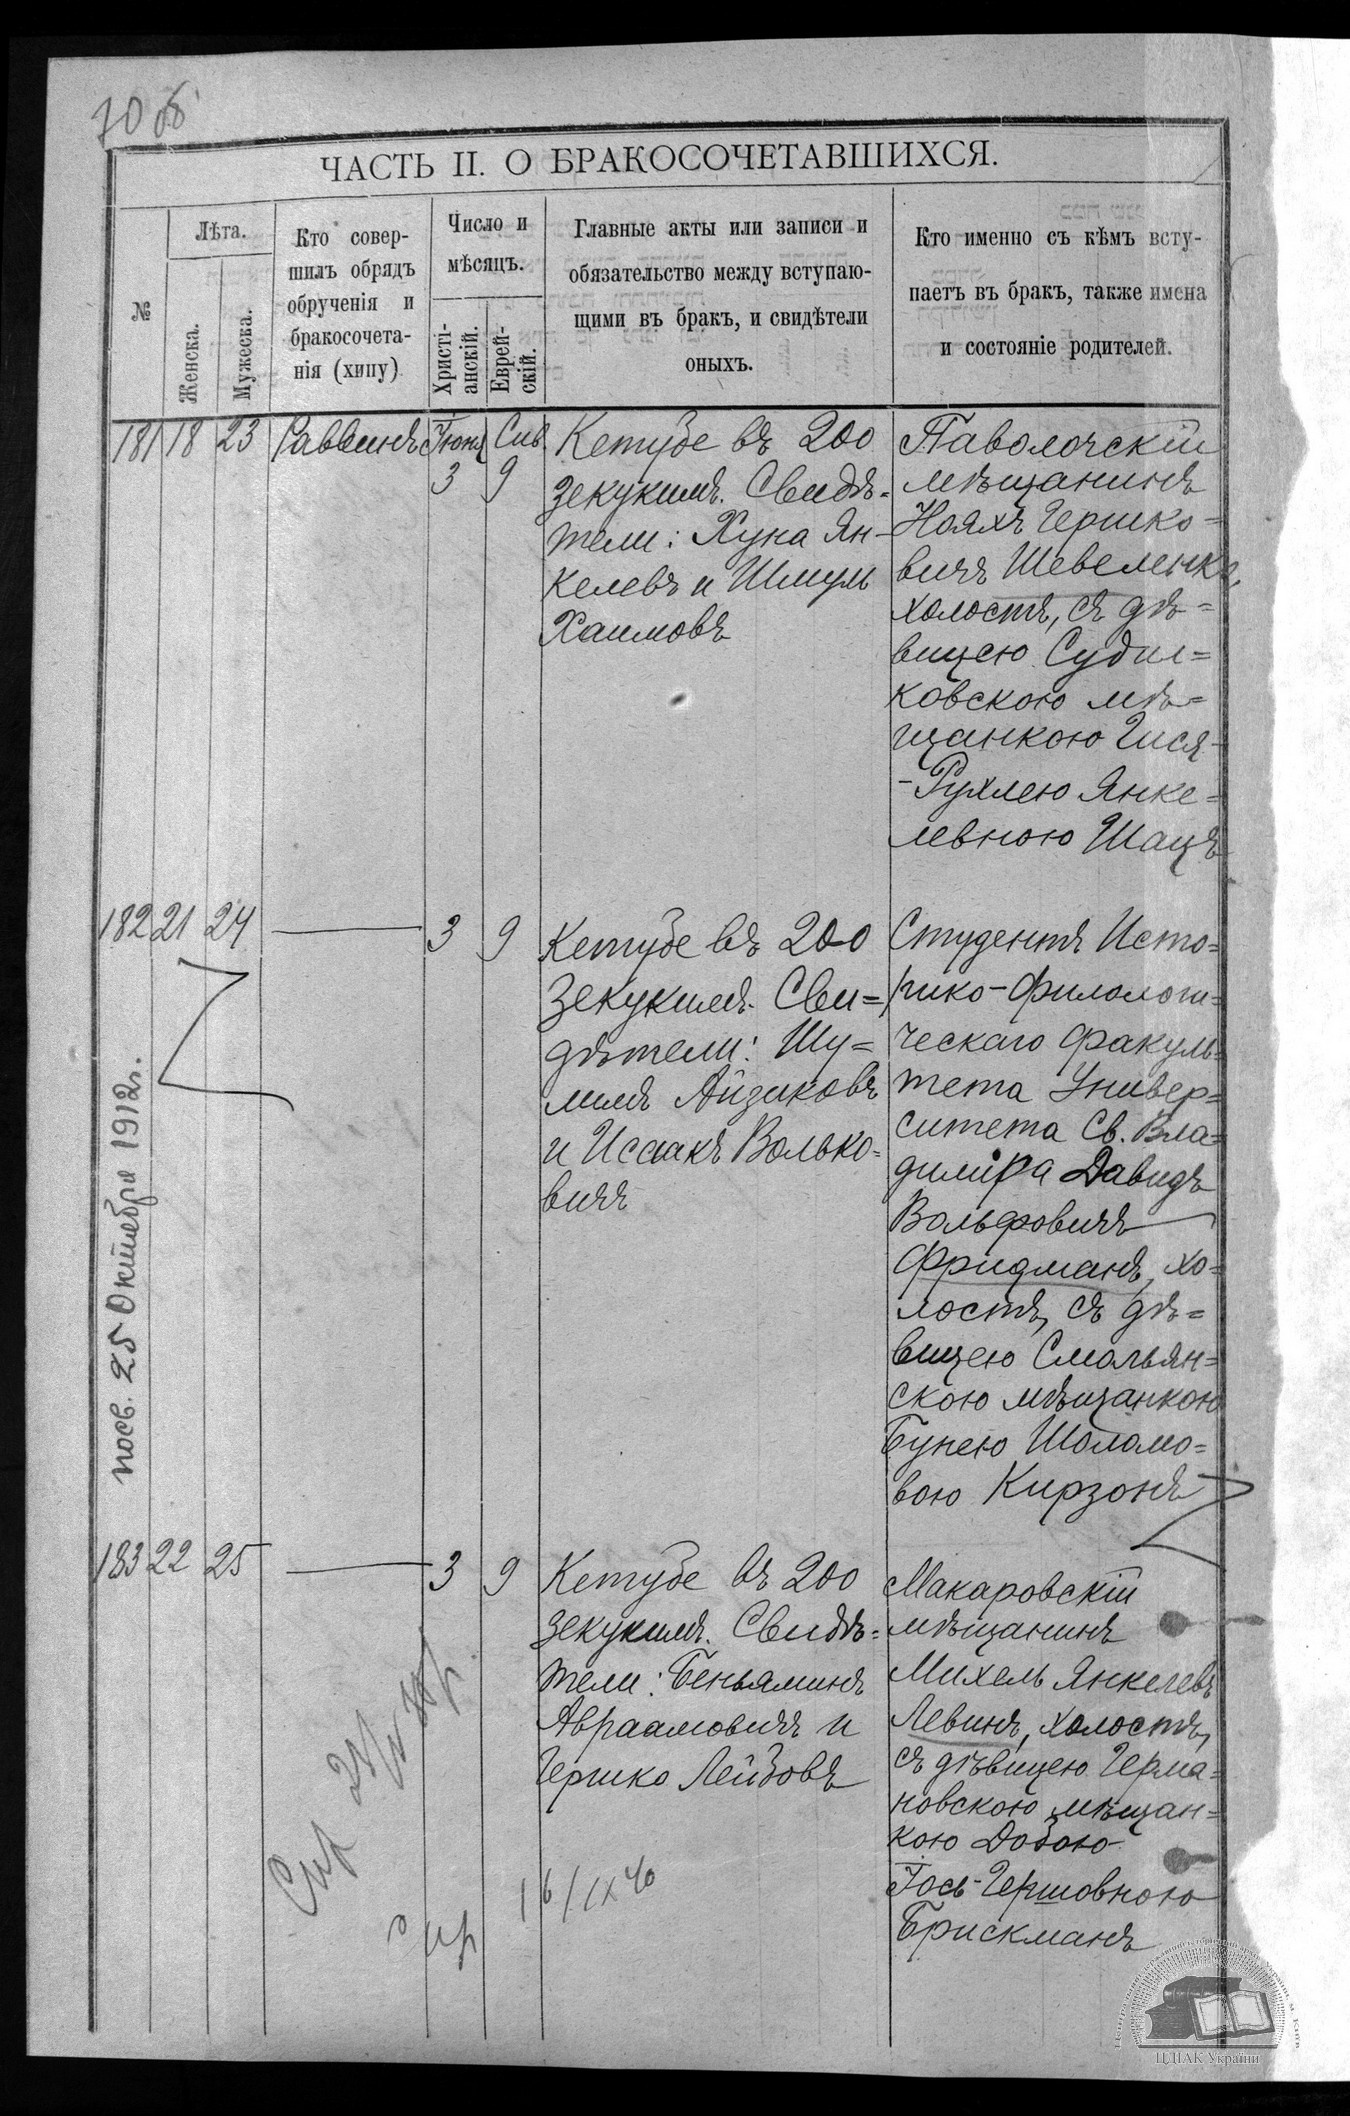 70 об
ЧАСТЬ II. О БРАКОСОЧЕТАВШИХСЯ.
№
Лѣта.
Женска.
Мужеска.
Кто совер-
шилъ обрядъ
обрученія и
бракосочета-
нія (хипу)
Число и
мѣсяцъ.
Христі-
анскій.
Еврей-
скій.
Главные акты или записи и
обязательство между вступаю-
щими въ бракъ, и свидѣтели
оныхъ.
Кто именно съ кѣмъ всту-
паетъ въ бракъ, также имена
и состояніе родителей.
181 18 23 Раввинъ Іюня 3 Сив. 9
Кетубе въ 200
зекукимъ. Свидѣ=
тели: Хуна Ян-
келевъ и Шмуль
Хаимовъ
Паволочскій
мѣщанинъ
Нояхъ Гершко=
вичъ Шевеленко,
холостъ, съ дѣ=
вицею Судил=
ковскою мѣ=
щанкою Гися-
-Рухлею Янке=
левною Шацъ
182 21 24 — 3 9
Кетубе въ 200
зекукимъ. Сви=
дѣтели: Шу=
лимъ Айзиковъ
и Исаакъ Волько=
вичъ
Студентъ Исто=
рико-филологи=
ческаго факуль=
тета Универ=
ситета Св. Вла=
диміра Давидъ
Вольфовичъ
Фридманъ, хо=
лостъ, съ дѣ=
вицею Смольян=
скою мѣщанкою
Бунею Шоломо=
вою Кирзонъ
посв. 25 Октября 1912 г.
183 22 25 — 3 9
Кетубе въ 200
зекукимъ. Свидѣ=
тели: Беньяминъ
Авраамовичъ и
Гершко Лейбовъ
Макаровскій
мѣщанинъ
Михель Янкелевъ
Левинъ, холостъ,
съ дѣвицею Герма=
новскою мѣщан=
кою Добою-
Гось-Гершовною
Брискманъ
16/IX 40
ЦДІАК України